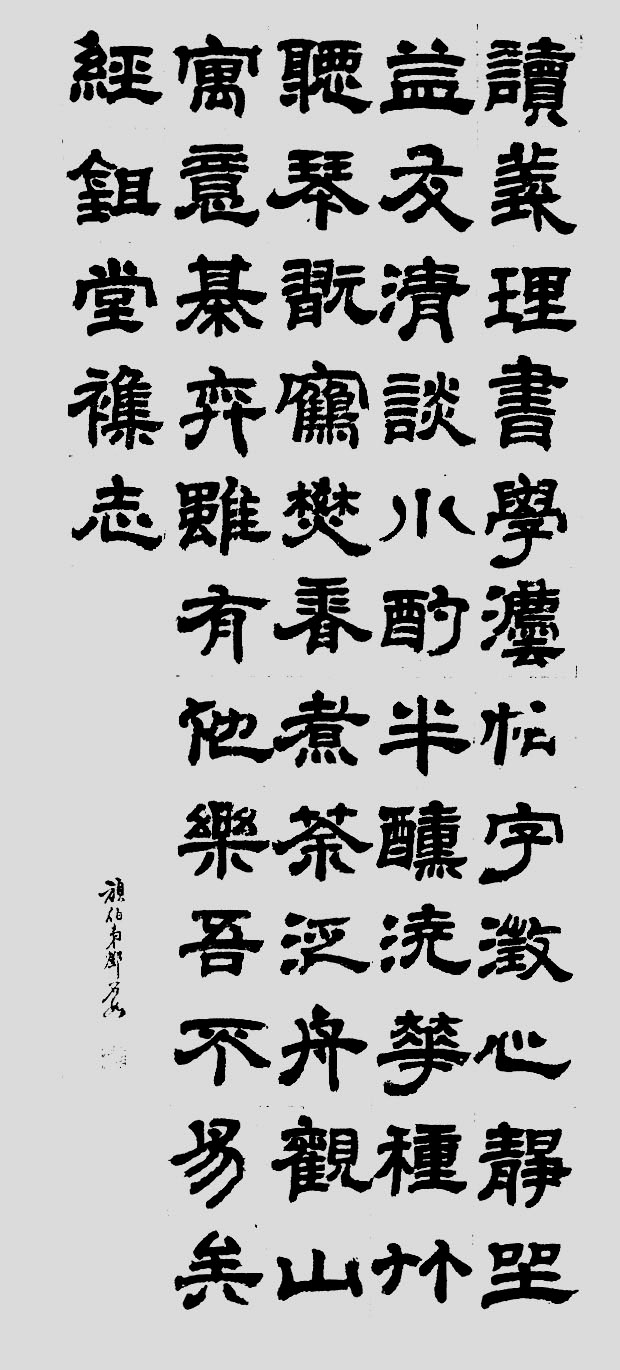 讀義理書學灋帖字澂心靜坐
益友清談小酌半醺澆華種竹
聽琴翫鶴焚香煮茶泛舟觀山
寓意棊弈雖有他樂吾不易矣
經鉏堂襍志
頑伯弟鄧石如